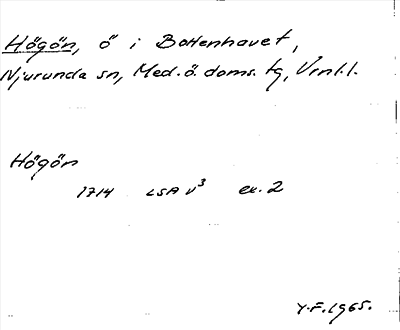 Högön, ö i Bottenhavet,
Njurunda sn, Med. ö. doms. tg, Vrnl.l.
Högön
1714 LSA V³ ex. 2
Y.F. 1965.